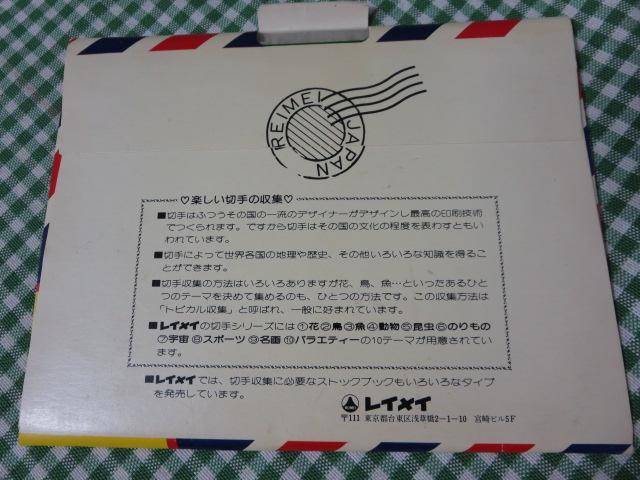 REIMEI JAPAN
♡楽しい切手の収集♡
■切手はふつうその国の一流のデザイナーがデザインし最高の印刷技術
でつくられます。ですから切手はその国の文化の程度を表わすともい
われています。
■切手によって世界各国の地理や歴史、その他いろいろな知識を得るこ
とができます。
■切手収集の方法はいろいろありますが花、鳥、魚…といったあるひと
つのテーマを決めて集めるのも、ひとつの方法です。この収集方法は
「トピカル収集」と呼ばれ、一般に好まれています。
■レイメイの切手シリーズには①花②鳥③魚④動物⑤昆虫⑥のりもの
⑦宇宙⑧スポーツ⑨名画⑩バラエティーの10テーマが用意されてい
ます。
■レイメイでは、切手収集に必要なストックブックもいろいろなタイプ
を発売しています。
レイメイ
〒111 東京都台東区浅草橋2-1-10 宮崎ビル5F